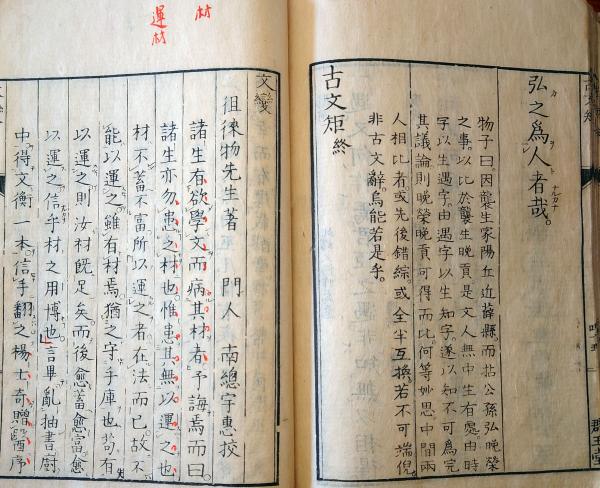 弘之爲人者哉。
物子曰。因龔生家陽丘近薛縣。而拈公孫弘晚榮
之事。以比於龔生晚貢。是文人無中生有處。由時
字以生遇字。由遇字以生知字。遂以知不可爲完
其議論。則晚榮晚貢可得而比。何等妙思。中間兩
人相比者。或先後錯綜。或全半互換。若不可端倪。
非古文辭。烏能若是乎。
古文矩終
文變
徂徠物先生著 門人 南總宇惠挍
諸生有欲學文而病其材者。予誨焉而曰。
諸生亦勿患之材也。惟患其無以運之也。
材不蓄不富。所以運之者在法而已。故不
能以運之。雖有材焉。猶之守乎庫也。苟有
以運之。則汝材既足矣。而後愈蓄愈富愈
以運之。信乎材之用博也。言畢。亂抽書厨
中。得文衡一本。信手翻之。楊士奇贈醫序
材
運材
古文矩
群玉堂